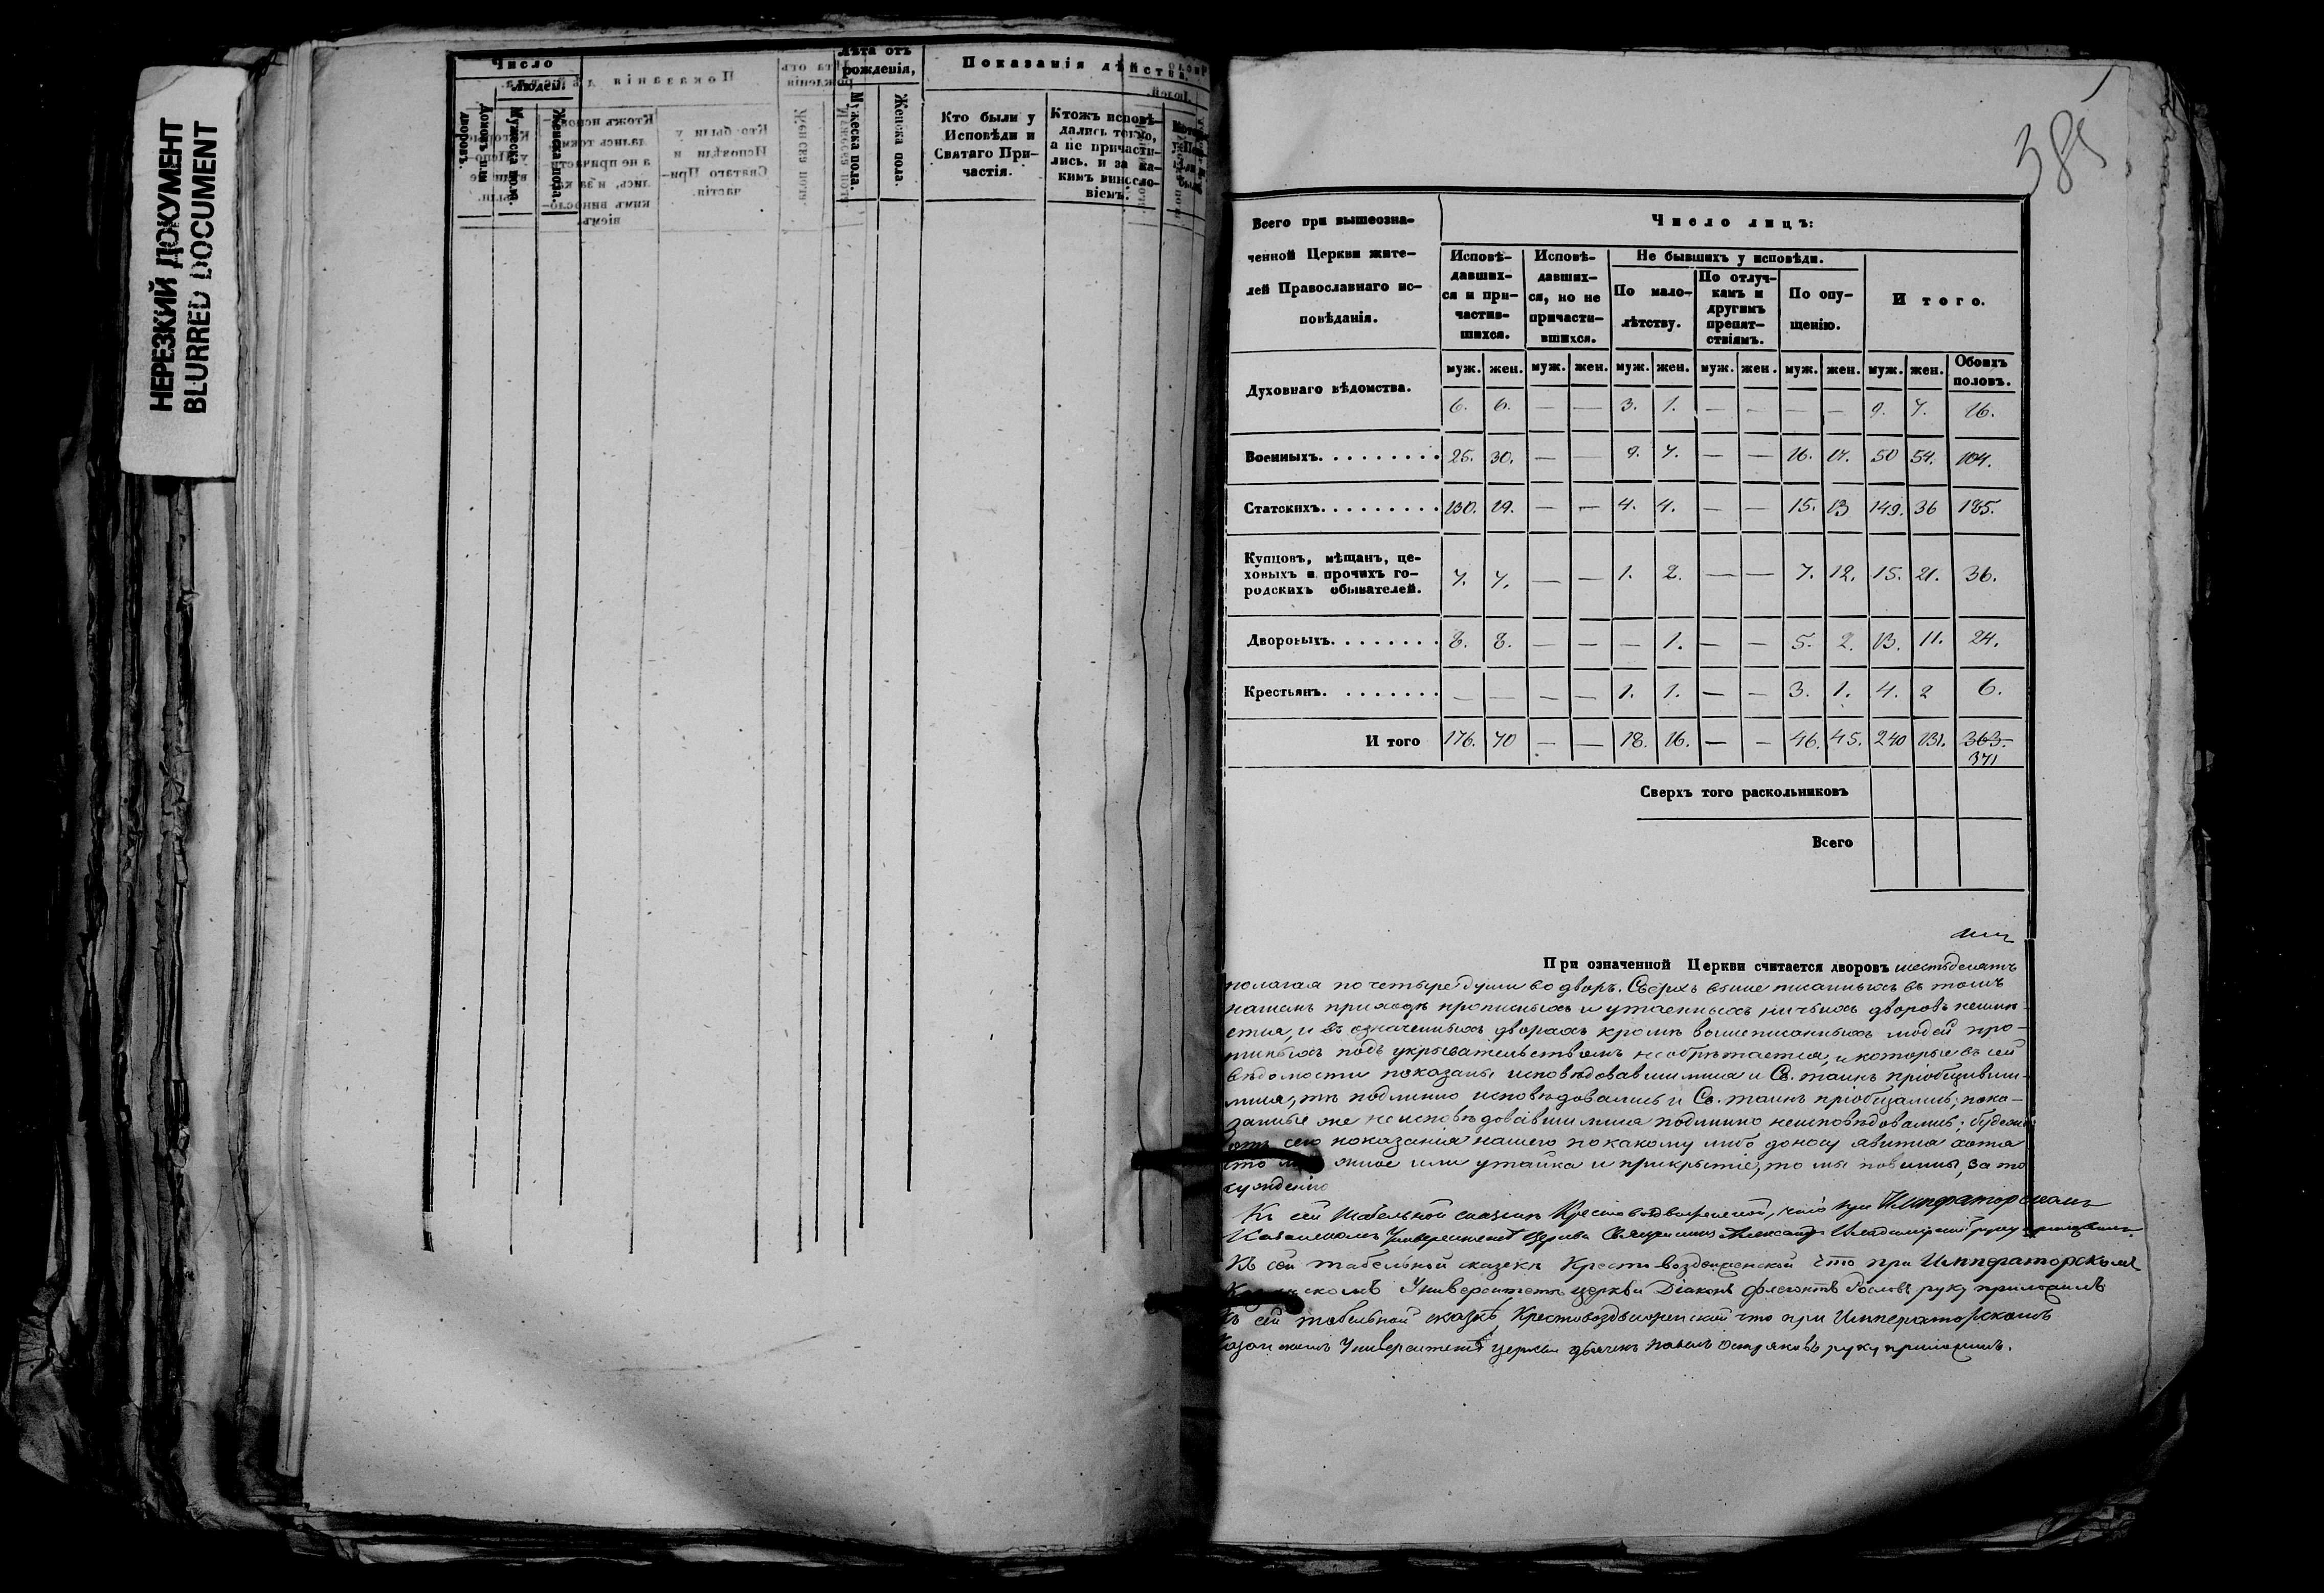 НЕРЕЗКИЙ ДОКУМЕНТ
BLURRED DOCUMENT
Число
Людей.
Домовъ или дворовъ.
Мужеска пола.
Женска пола.
Лѣта отъ рожденія,
Мужеска пола.
Женска пола.
Показанія дѣйства.
Кто были у
Исповѣди и
Святаго При-
частія.
Ктожъ исповѣ-
дались токмо,
а не причасти-
лись. и за ка-
кимъ винсло-
віемъ.
385
Всего при вышеозна-
ченной Церкви жите-
лей Православнаго ис-
повѣданія.
Число лицъ:
Исповѣ-
давших-
ся и при-
частив-
шихся.
Исповѣ-
давших-
ся, но не
причасти-
вшихся.
Не бывшихъ у исповѣди.
По мало-
лѣтству.
По отлуч-
камъ и
другимъ
препят-
ствіямъ.
По опу-
щенію.
Итого.
муж. жен. муж. жен. муж. жен. муж. жен. муж. жен. муж. жен. Обоихъ половъ.
Духовнаго вѣдомства. 6. 6. — — 3. 1. — — — — 9. 7. 16.
Военныхъ. 25. 30. — — 9. 7. — — 16. 17. 50 54. 104.
Статскихъ. 130. 19. — — 4. 4. — — 15. 13 149. 36 185.
Купцовъ, мѣщанъ, це-
ховыхъ и прочихъ го-
родскихъ обывателей. 7. 7. — — 1. 2. — — 7. 12. 15. 21. 36.
Дворовыхъ. 8. 8. — — — 1. — — 5. 2. 13. 11. 24.
Крестьянъ. — — — — 1. 1. — — 3. 1. 4. 2 6.
И того 176. 70 — — 18. 16. — — 46. 45. 240 131. 363.
371
Сверхъ того раскольниковъ
Всего
При означенной Церкви считается дворовъ шестьдесятъ
полагая по четыре души во дворъ. Сверхъ выше писанныхъ въ томъ
нашемъ приходѣ прописныхъ и утаенныхъ ничьихъ дворовъ неимѣ-
ется, и въ означенныхъ дворахъ кромѣ вышеписанныхъ людей про-
писныхъ подъ укрывательствомъ необрѣтается, и которые въ сей
вѣдомости показаны исповѣдовавшимися и Св. таинъ пріобщивши-
мися, тѣ подлинно исповѣдовались и Св. таинъ пріобщались; пока-
занные же неисповѣдовавшимися подлинно неисповѣдовались; будежъ
отъ сего показанія нашего по какому либо доносу явится хотя
что ложное или утайка и прикрытіе, то мы повинны, за то
сужденію
Къ сей табельной сказкѣ Крестовоздвиженской, что при Императорскомъ
Казанскомъ Университетѣ церкви Священникъ Александръ Владимірскій руку приложилъ.
Къ сей табельной сказкѣ Крестовоздвиженской что при Императорскомъ
Казанскомъ Университетѣ церкви Діаконъ руку приложилъ
Къ сей табельной сказкѣ, Крестовоздвиженской что при Императорскомъ
Казанскомъ Университетѣ церкви дьячекъ Павелъ Остряковъ руку приложилъ.